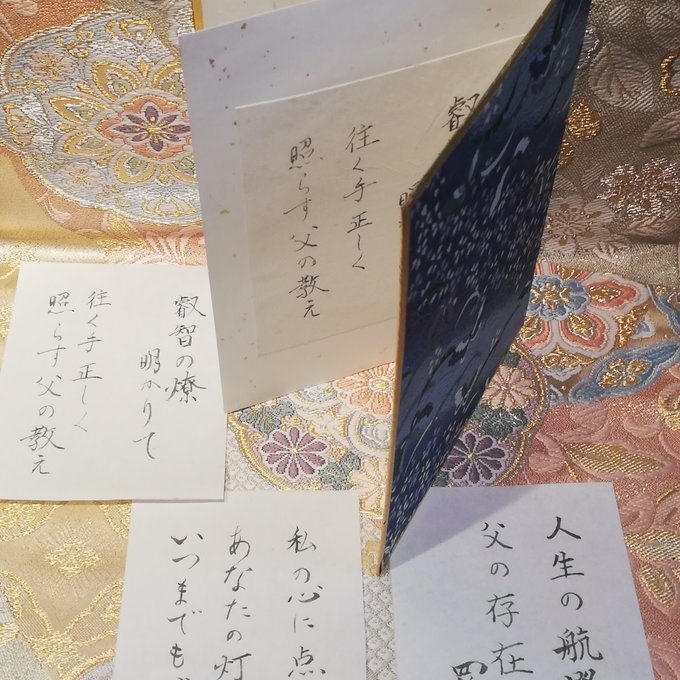 叡
往く手正しく
照らす父の教え
叡智の燎
明かりて
往く手正しく
照らす父の教え
人生の航
父の存在
私の心に点
あなたの灯
いつまでも